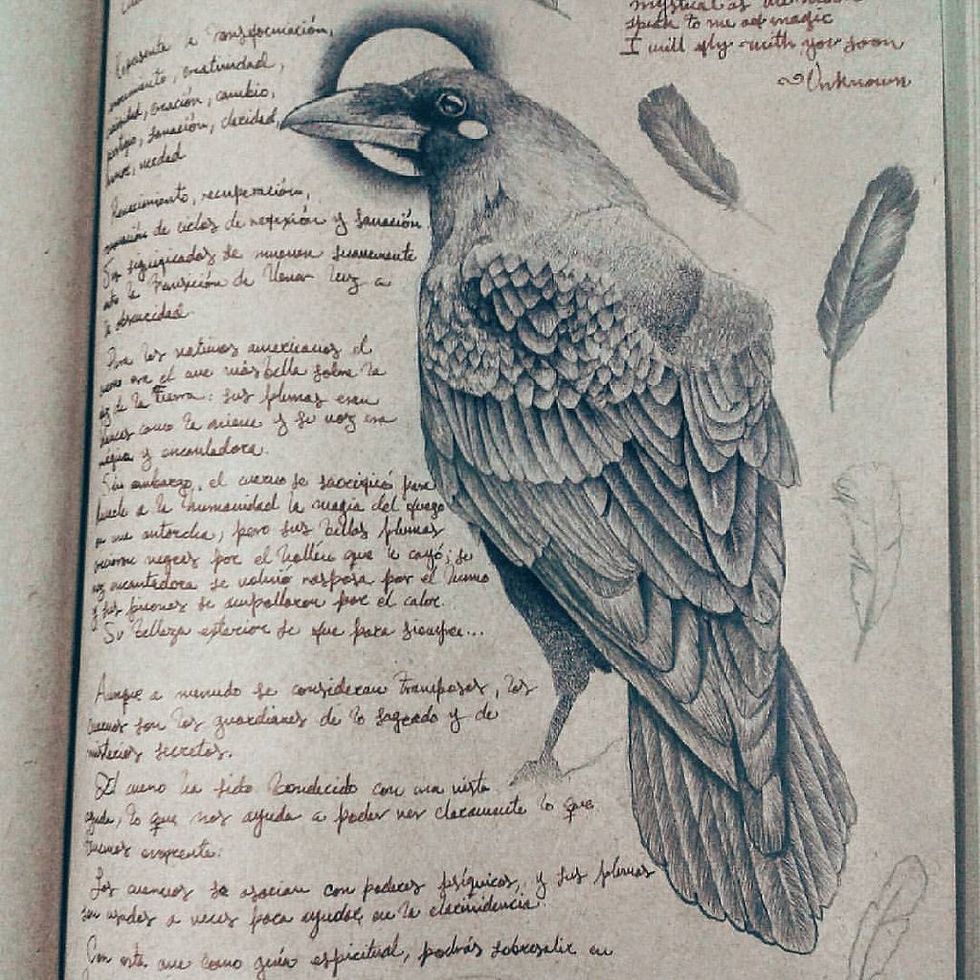 mystical as the moon
speak to me of magic
I will fly with you soon
~Unknown
Representa a Transformación,
creatividad,
oración, cambio,
sanación, claridad,
Renacimiento, recuperación,
de ciclos de reflexión y sanación
significados de mueven suavemente
la transición de llevar luz a
la obscuridad.
Para los nativos americanos el
era el ave más bella sobre la
de la Tierra: sus plumas eran
como la nieve y su voz era
y encantadora.
Sin embargo, el cuervo se sacrificó para
a la humanidad la magia del fuego
en una antorcha, pero sus bellas plumas
negras por el hollín que le cayó; su
voz encantadora se volvió rasposa por el humo
y sus se ampollaron por el calor.
Su belleza exterior se fue para siempre...
Aunque a menudo se consideran tramposos, los
cuervos son los guardianes de lo sagrado y de
misterios secretos.
El cuervo ha sido bendecido con una vista
aguda, lo que nos ayuda a poder ver claramente lo que
tenemos enfrente.
Los cuervos se asocian con poderes psíquicos, y sus plumas
son usadas a veces para ayudar en la clarividencia.
Con esta ave como guía espiritual, podrás sobresalir en